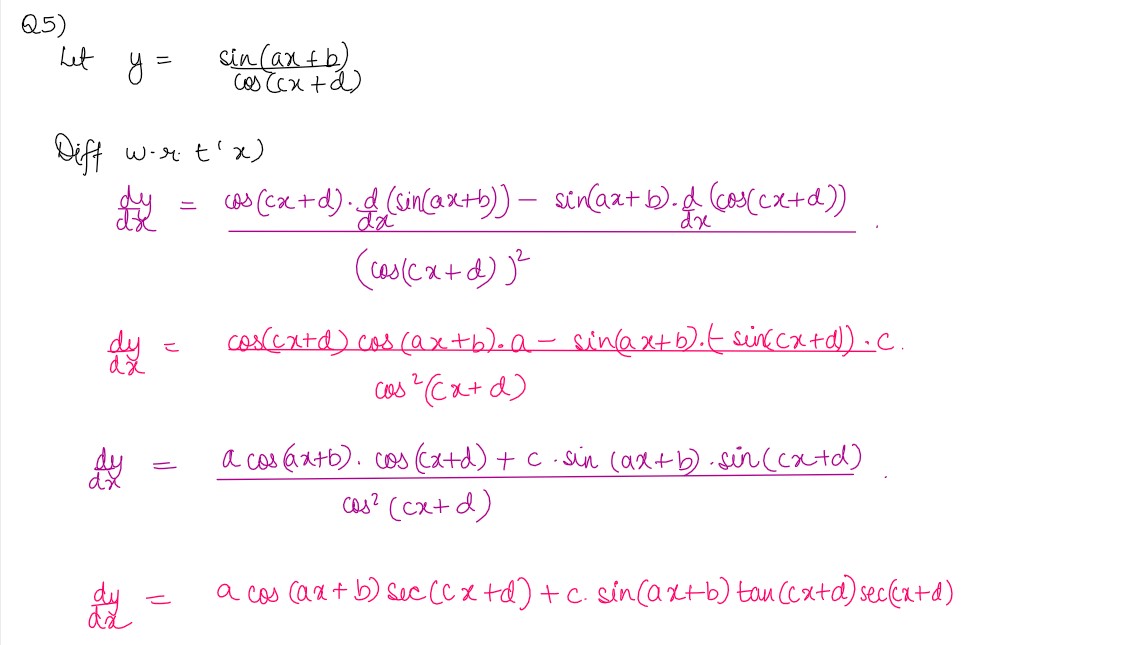 Q5)
Let y = sin(ax+b)/cos(cx+d)
Diff w.r.t 'x)
dy/dx = (cos(cx+d) . d/dx (sin(ax+b)) − sin(ax+b) . d/dx (cos(cx+d))) / (cos(cx+d))² .
dy/dx = (cos(cx+d) cos(ax+b).a − sin(ax+b).(− sin(cx+d)) . c.) / cos²(cx+d)
dy/dx = (a cos(ax+b). cos(cx+d) + c . sin (ax+b) . sin(cx+d)) / cos² (cx+d) .
dy/dx = a cos (ax+b) sec(cx+d) + c. sin(ax+b) tan(cx+d) sec(cx+d)